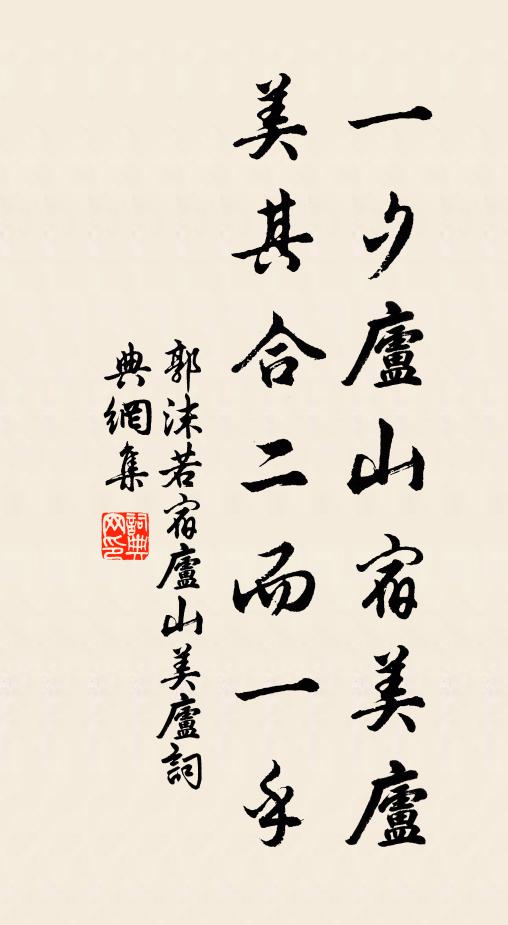 一夕廬山宿美廬
美其合二而一乎
郭沫若宿廬山美廬詞
典網集
詞典
網印